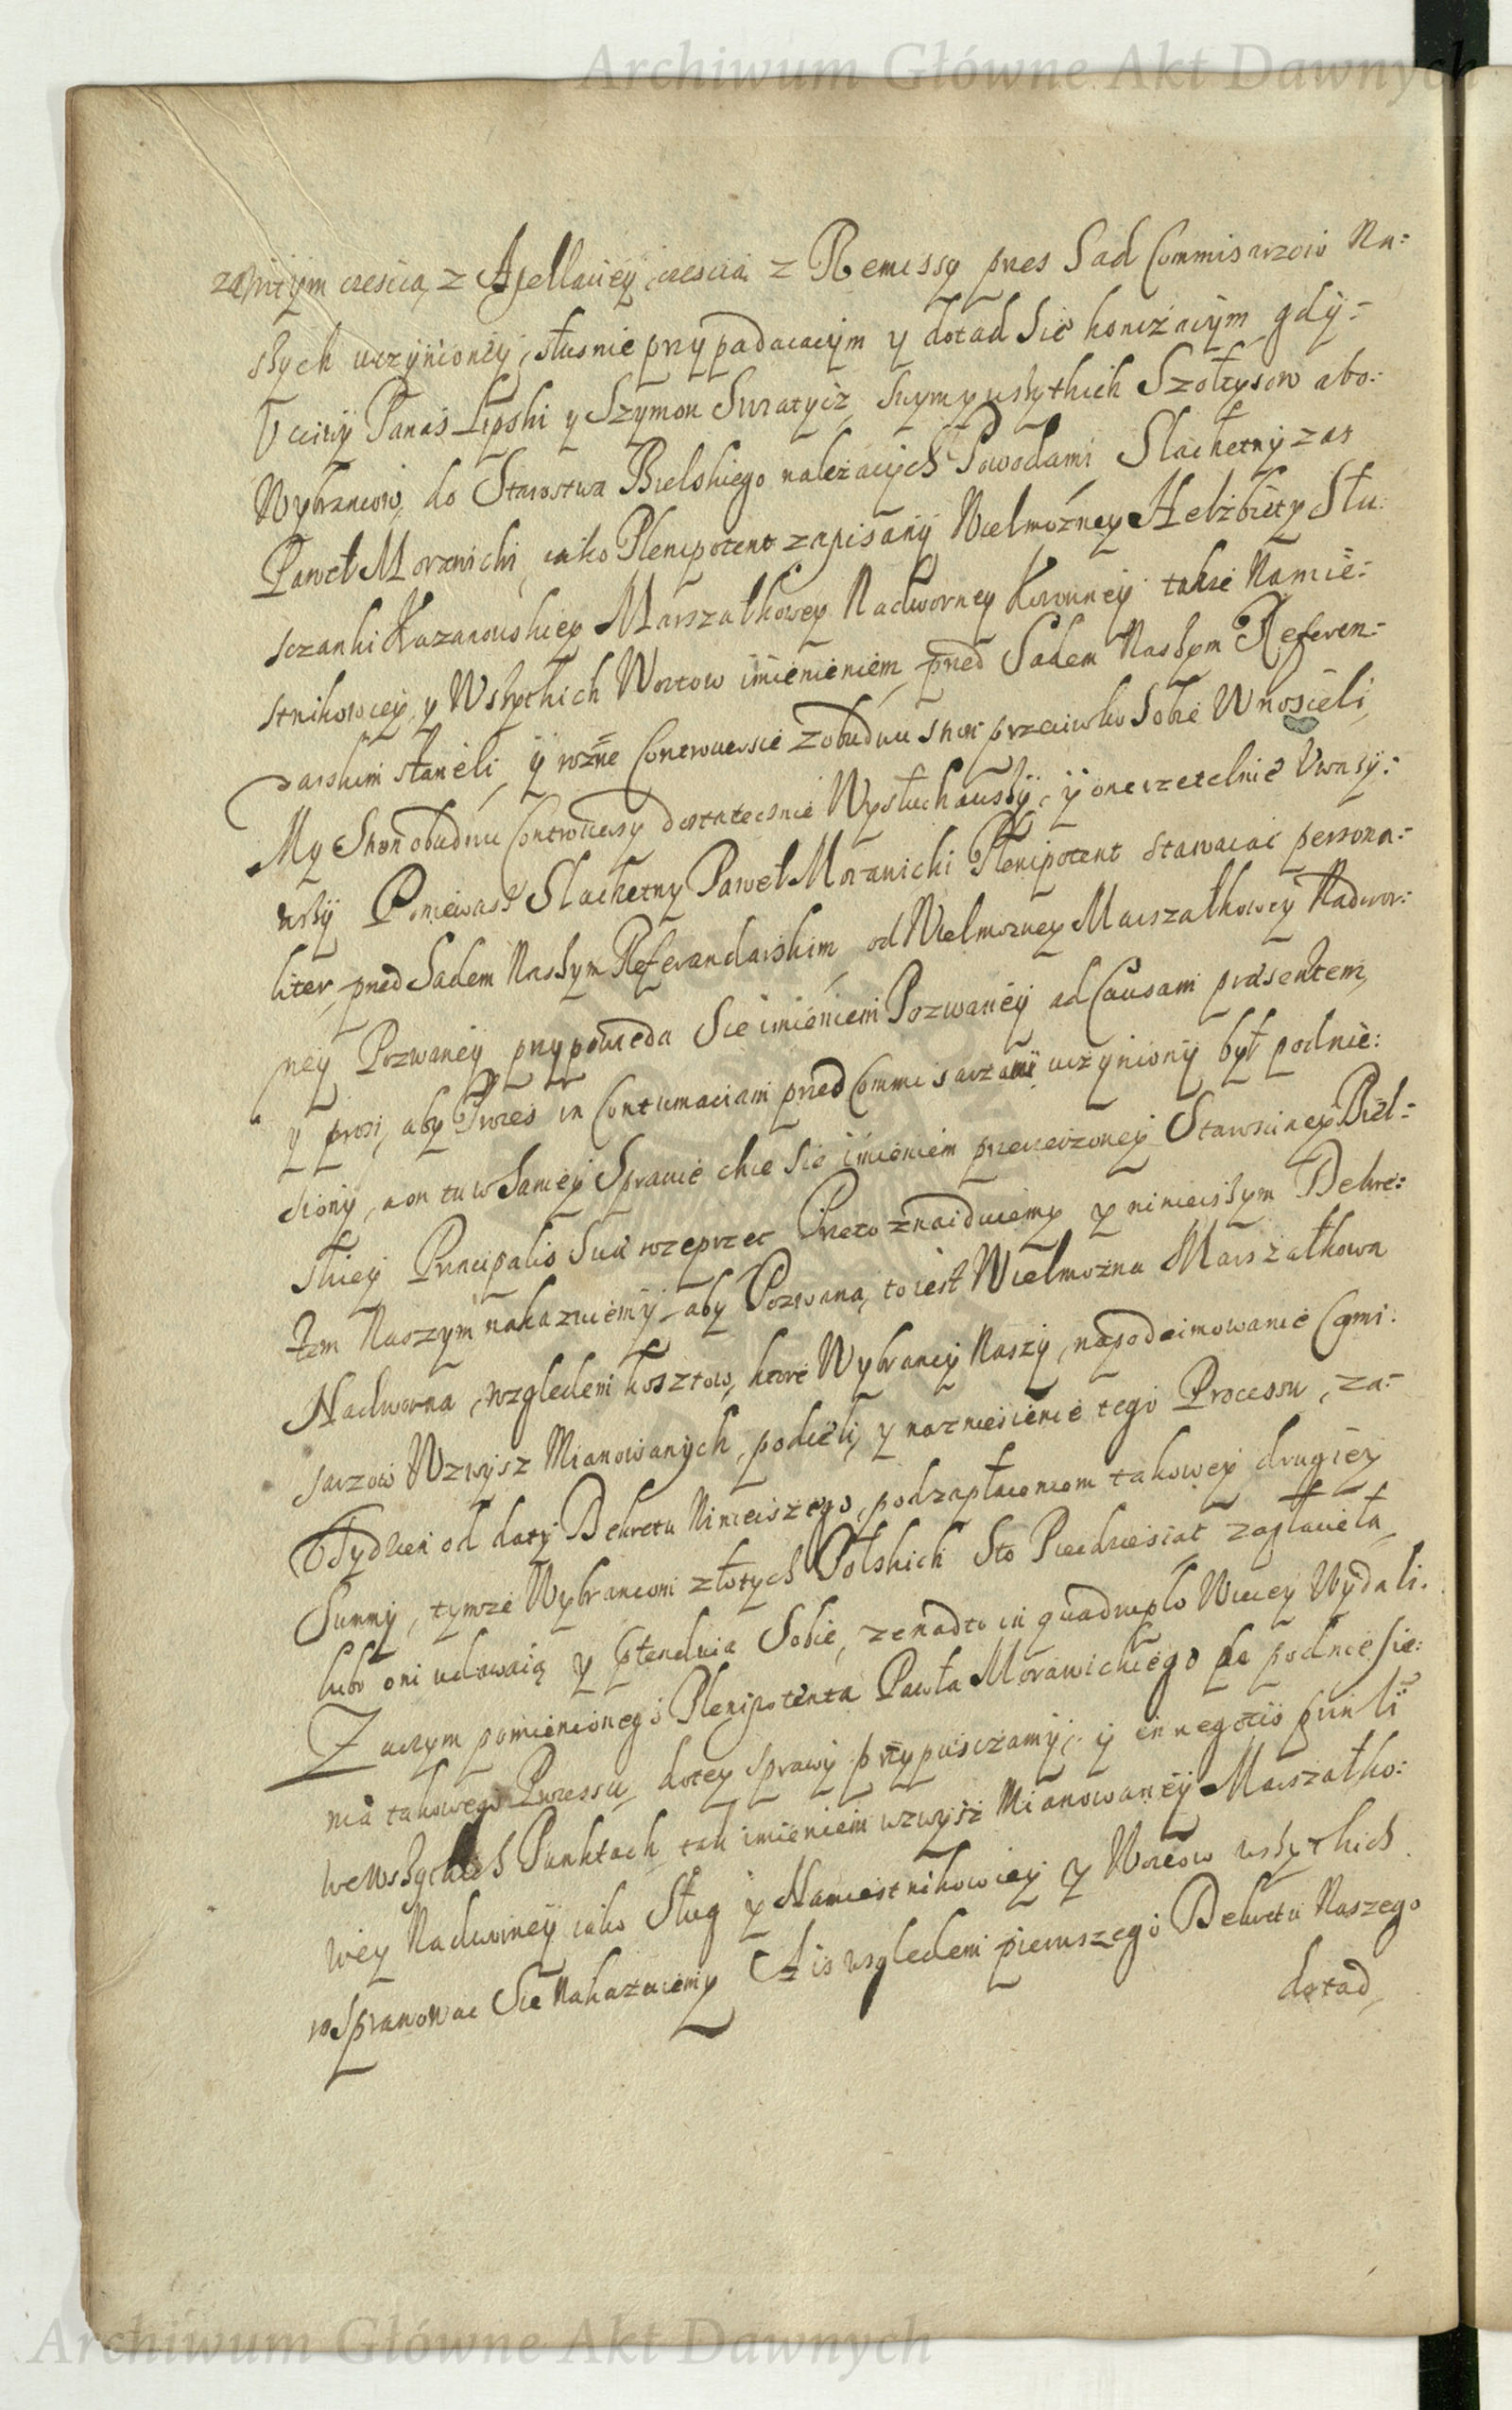 Archiwum Główne Akt Dawnych
zawitym czescią z Apellaciey czescia z Remissy przes Sad Commisarzow Na=
szych uczynioney, słusnie przypadaiącym y dotad sie konczącym gdy=
Vcciwy Panas Lipski y Szymon Suratycz, swym y wszytkich Szołtysow abo=
Wybrancow, do Starostwa Bielskiego należacych Powodami Slachetny zas
Paweł Morawicki iako Plenipotent zapisany Wielmożney Helzbiety Słu
sczanki Kazanowskiey Marszałkowey Nadworney Koronney także Namie=
stnikowey y Wszytkich Woytow imienieniem, przed Sadem Naszym Referen=
darskim staneli, y rożne Controuersie z obudwu stron przeciwko Sobie Wnosieli,
My Stron obudwu Controuersy dostatecznie Wysłuchawszy, y one rzetelnie Vwazy=
wszy Poniewasz Slachetny Paweł Morawicki Plenipotent stawaiac persona=
liter, przed Sadem Naszym Referendarskim, od Wielmozney Marszałkowey Nadwor=
ney Pozwaney przypowieda Sie imieniem Pozwaney ad Causam præsentem,
y prosi, aby Proces in Contumaciam przed Commisarzami uczyniony był podnie=
siony, a on tu w Samey Sprawie chce Sie imieniem przerzeczoney Starosciney Biel=
skiey Principalis Suæ rozeprzec Przeto znaiduiemy y ninieiszym Dekre=
tem Naszym nakazuiemy aby Pozwana, to iest Wielmożna Marszałkowa
Nadworna, względem kosztow, ktore Wybrancy Naszy, na podeimowanie Comi=
sarzow Wzwysz Mianowanych, podieli, y na zniesienie tego Processu, za=
Tydzien od daty Dekretu Ninieiszego, pod zapłaceniem takowey drugiey
Summy, tymze Wybrancom złotych Polskich Sto Piecdziesiat zapłaciela,
lubo oni udawaią y ptenduia Sobie, ze nadto in quadruplo Wiecey Wydali.
Zaczym pomienionego Plenipotenta Pawła Morawickiego do podniesie=
nia takowego Processu, do tey sprawy przypusczamy, y in negotio prinli
we Wszytkich Punktach tak imieniem wzwysz Mianowaney Marszałko=
wey Nadworney iako Sług y Namiestnikowey y Woytow wszytkich
rosprawowac Sie Nakazuiemy A is względem pierwszego Dekretu Naszego
dotad,
Archiwum Główne Akt Dawnych